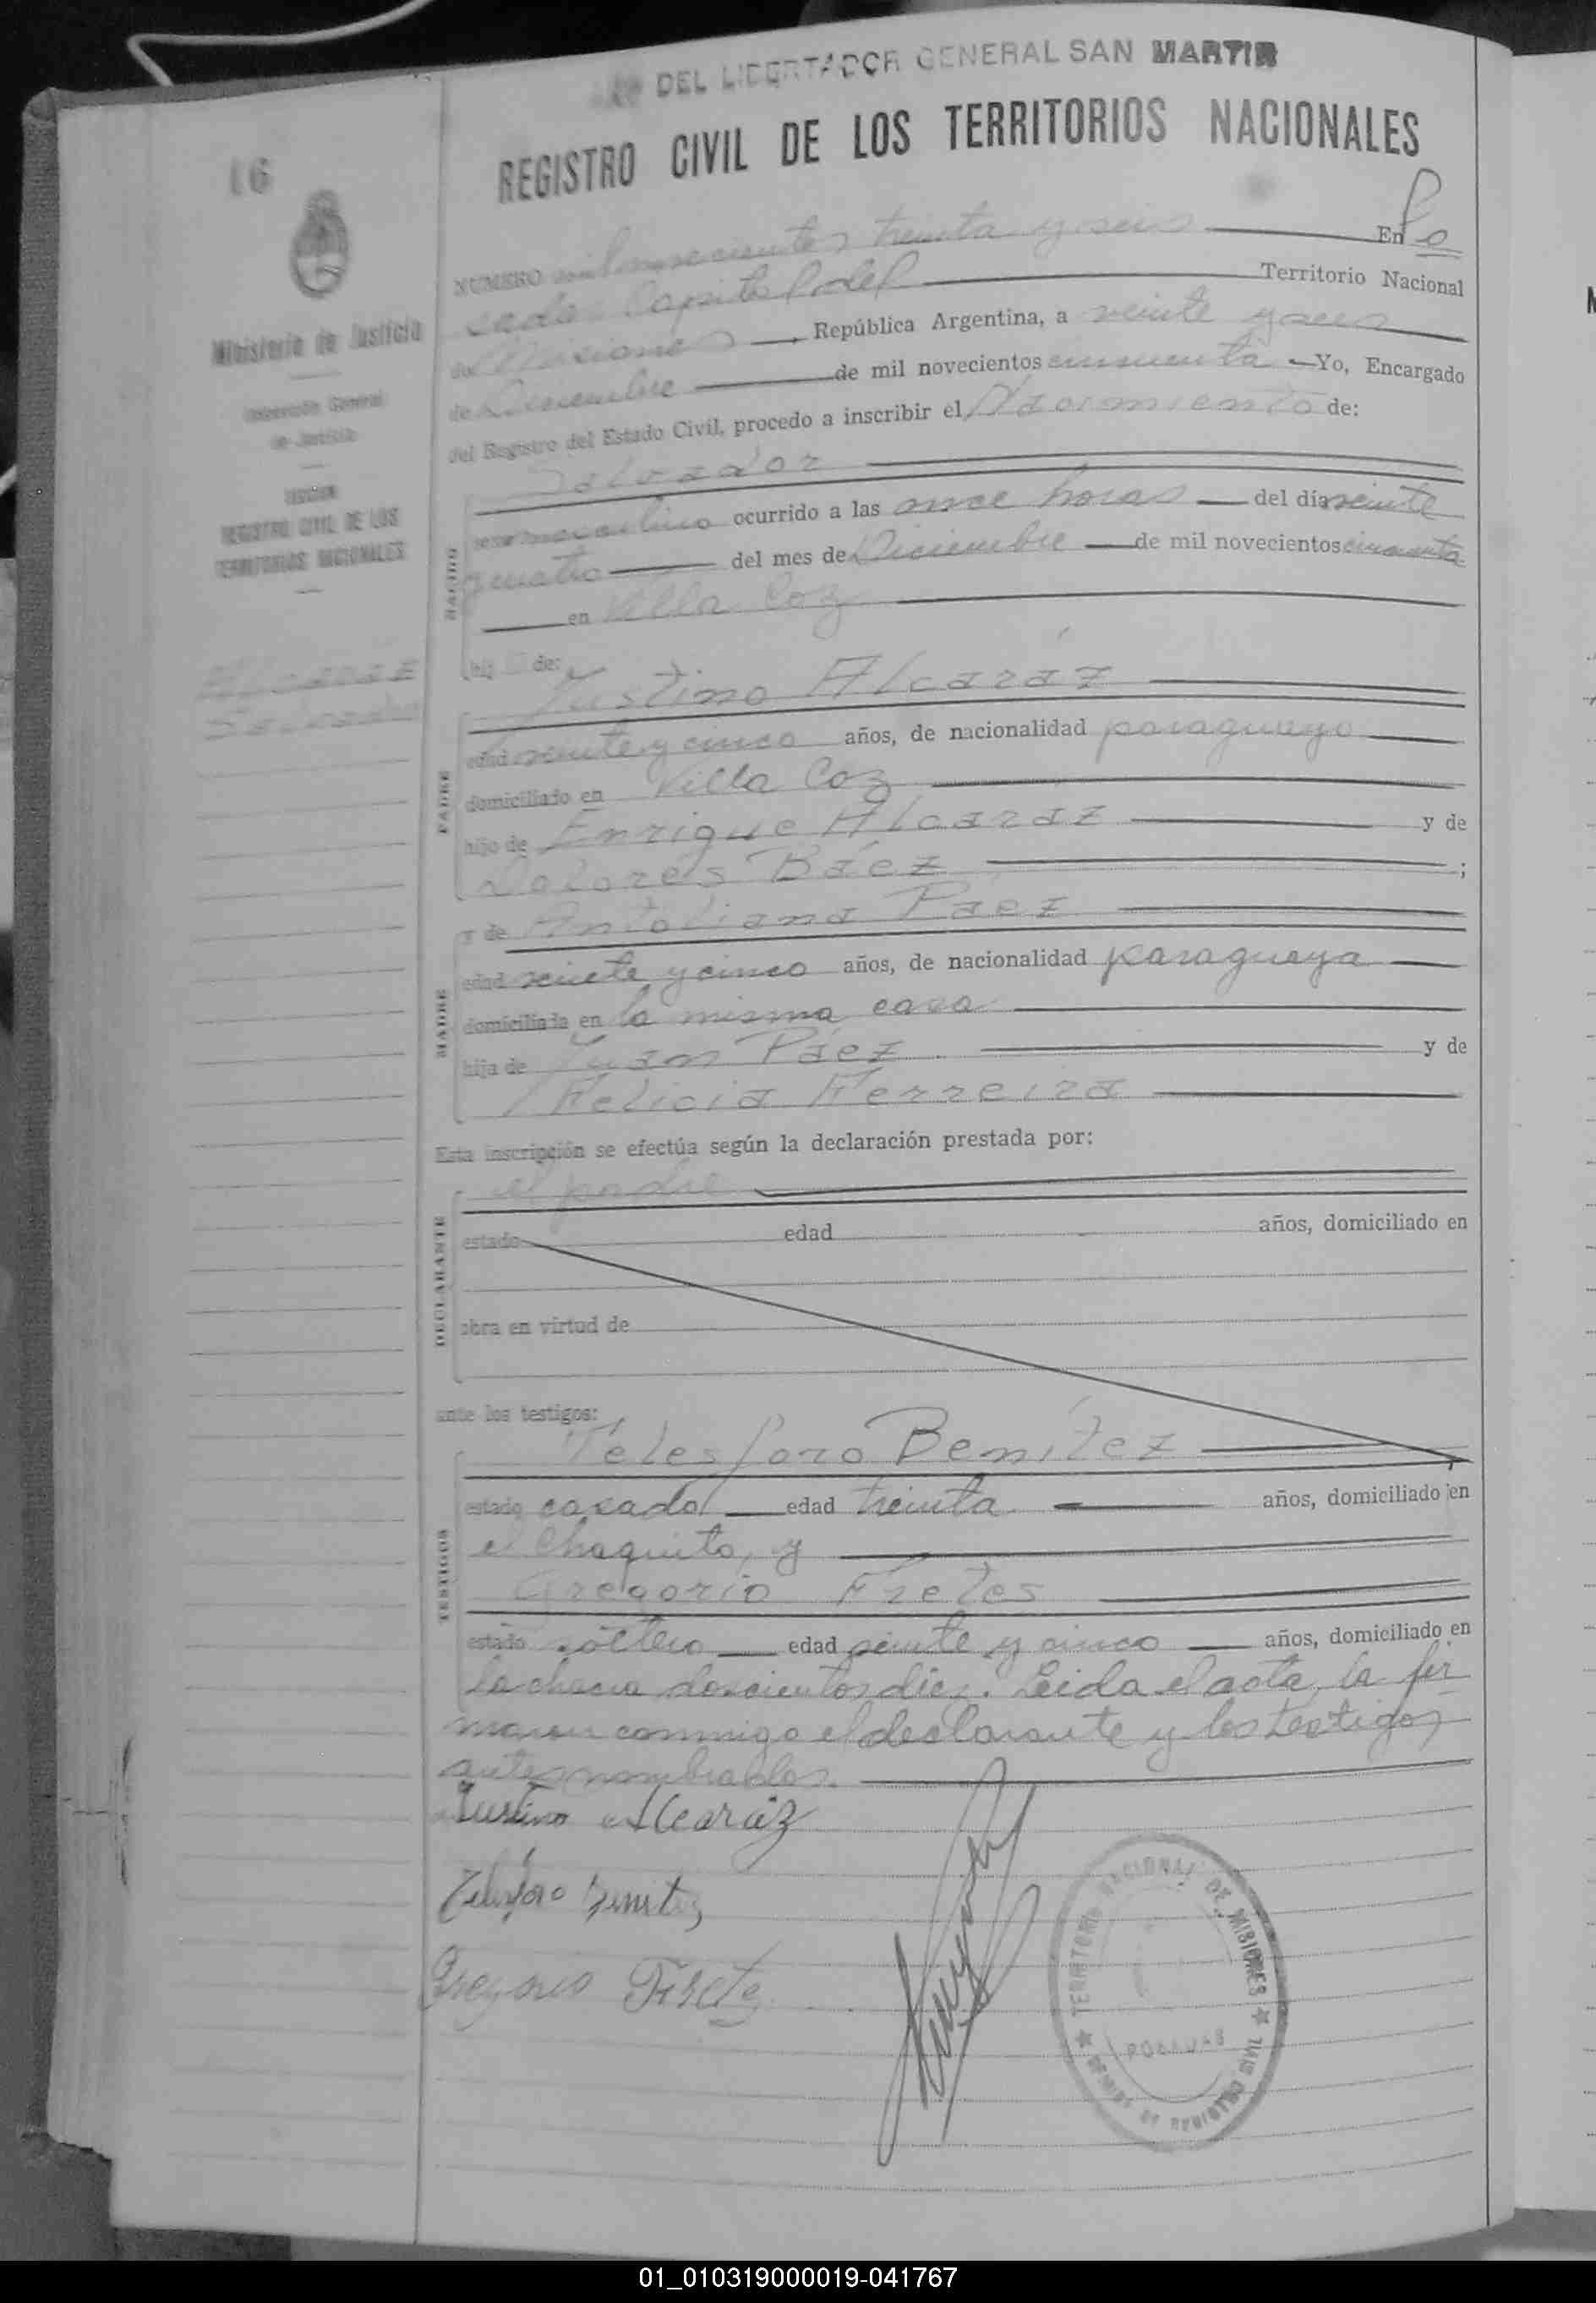 DEL LIBERTADOR GENERAL SAN MARTIN
REGISTRO CIVIL DE LOS TERRITORIOS NACIONALES
16
Ministerio de Justicia
Inspección General
de Justicia
SECCION
REGISTRO CIVIL DE LOS
TERRITORIOS NACIONALES
Alcaraz
Salvador
NUMERO mil novecientos treinta y seis En Po
sadas Capital del Territorio Nacional
de Misiones, República Argentina, a veinte y seis
de Diciembre de mil novecientos cincuenta Yo, Encargado
del Registro del Estado Civil, procedo a inscribir el Nacimiento de:
Salvador
sexo masculino ocurrido a las once horas del día veinte
y cuatro del mes de Diciembre de mil novecientos cincuenta
en Villa Coz
hij de:
Justino Alcaráz
edad veinte y cinco años, de nacionalidad paraguayo
domiciliado en Villa Coz
hijo de Enrique Alcaráz y de
Dolores Báez ;
y de Antoliana Páez
edad veinte y cinco años, de nacionalidad paraguaya
domiciliada en la misma casa
hija de Juan Páez y de
Felicia Ferreira
Esta inscripción se efectúa según la declaración prestada por:
el padre
estado edad años, domiciliado en
obra en virtud de
ante los testigos:
Telesforo Benítez
estado casado edad treinta años, domiciliado en
el Chaquito, y
Gregorio Fretes
estado soltero edad veinte y cinco años, domiciliado en
la chacra doscientos diez. Leida el acta, la fir
maron conmigo el declarante y los testigos
antes nombrados.
Justino Alcaráz
Telesforo Benitez
Gregorio Fretes
NACIDO
PADRE
MADRE
DECLARANTE
TESTIGOS
TERRITORIO NACIONAL DE MISIONES
POSADAS
REGISTRO CIVIL
01_010319000019-041767